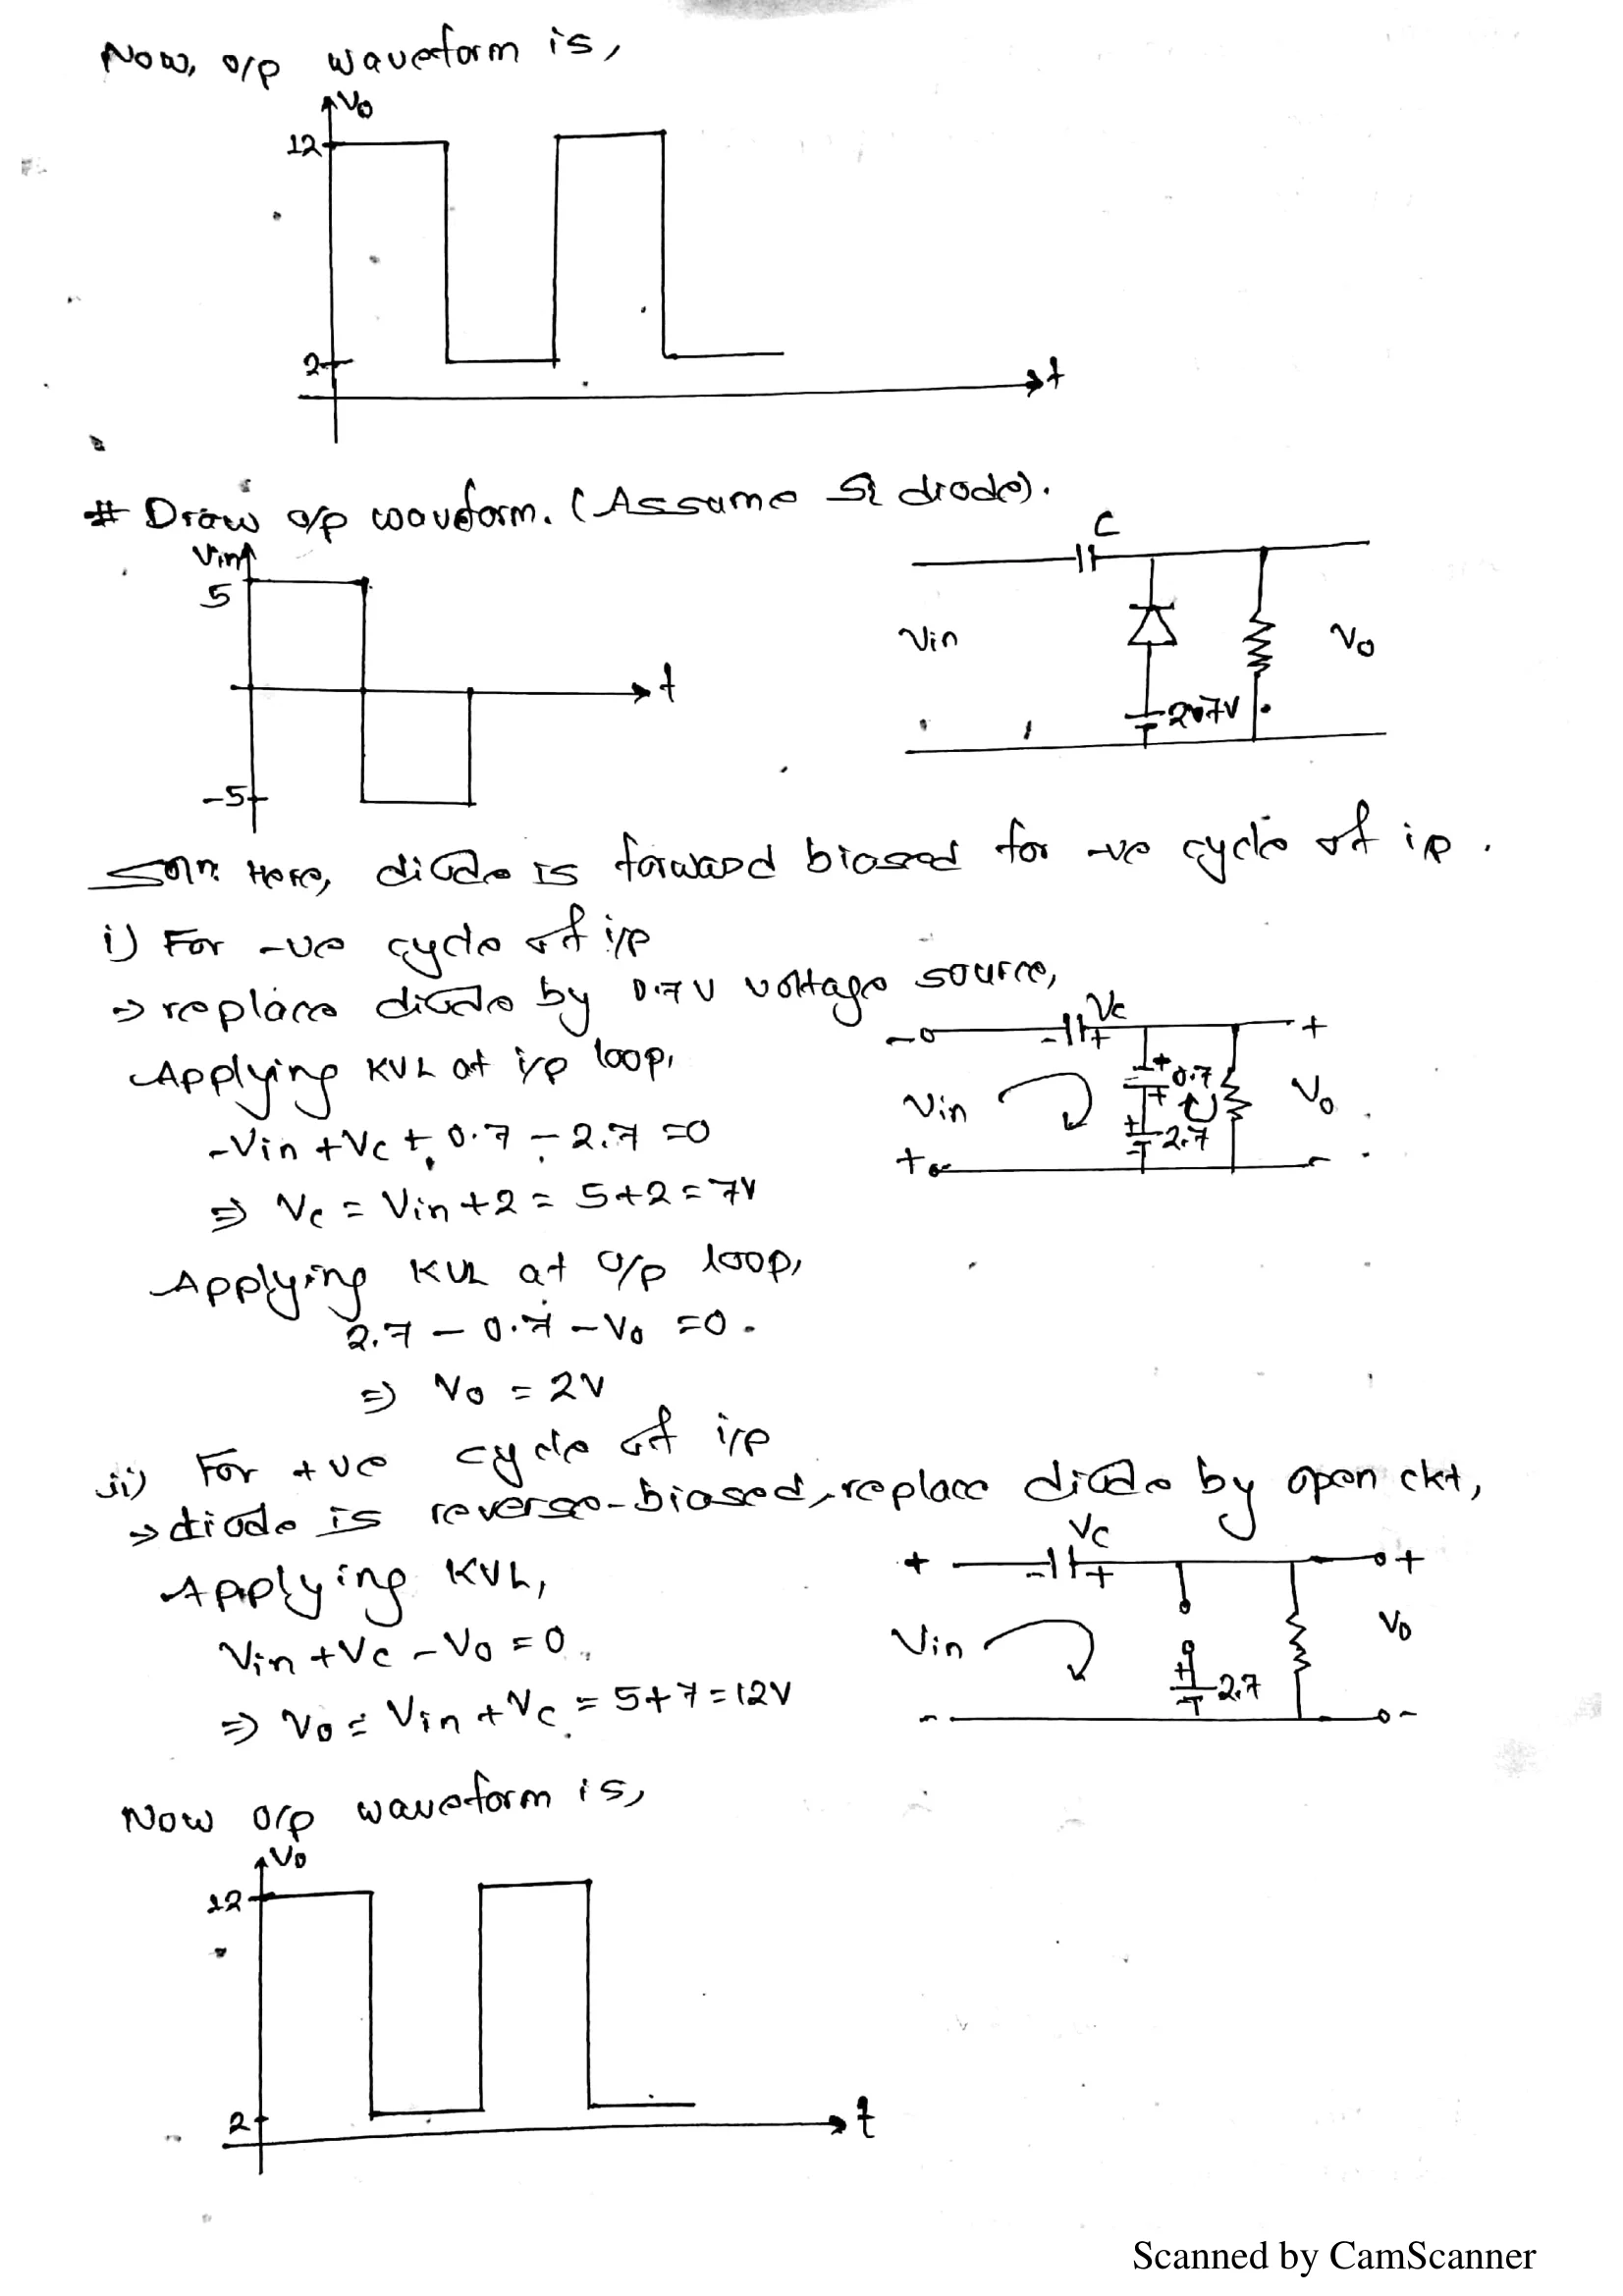 Now, o/p waveform is,
Vo
12
2
t
# Draw o/p waveform. (Assume Si diode).
Vin
5
t
-5
C
Vin
2.7V
Vo
Soln: Here, diode is forward biased for -ve cycle of i/p.
i) For -ve cycle of i/p
⇒ replace diode by 0.7V voltage source,
Applying KVL at i/p loop,
-Vin + Vc + 0.7 - 2.7 = 0
⇒ Vc = Vin + 2 = 5 + 2 = 7V
- Vc +
- +
Vin
+ 0.7
+
+ 2.7
-
Vo
+ -
Applying KVL at o/p loop,
2.7 - 0.7 - Vo = 0.
⇒ Vo = 2V
ii) For +ve cycle of i/p
⇒ diode is reverse-biased, replace diode by open ckt,
Applying KVL,
Vin + Vc - Vo = 0
⇒ Vo = Vin + Vc = 5 + 7 = 12V
Vc
+ - + +
Vin
+ 2.7
-
Vo
- -
Now o/p waveform is,
Vo
12
2
t
Scanned by CamScanner